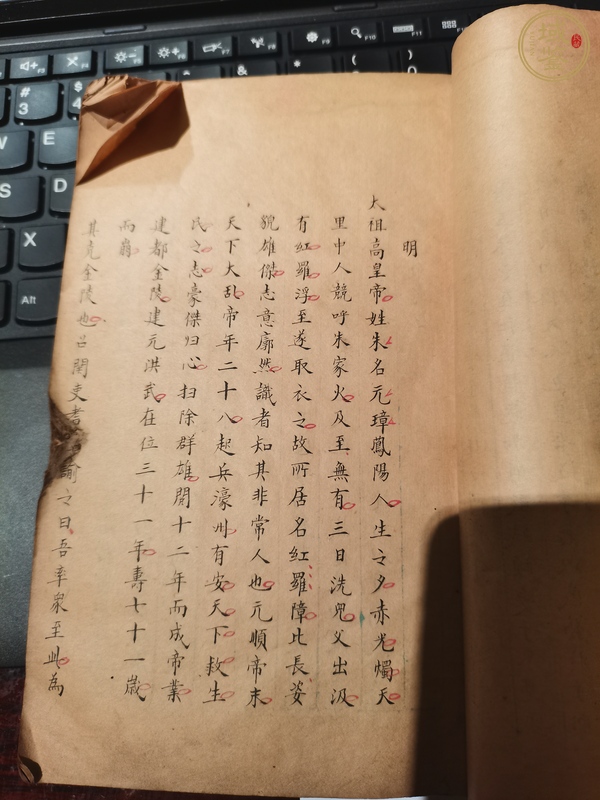 明
太祖高皇帝姓朱名元璋鳳陽人生之夕赤光燭天
里中人競呼朱家火及至無有三日洗兒父出汲
有紅羅浮至遂取衣之故所居名紅羅障比長姿
貌雄傑志意廓然識者知其非常人也元順帝末
天下大乱帝年二十八起兵濠州有安天下救生
民之志豪傑归心扫除群雄閱十二年而成帝業
建都金陵建元洪武在位三十一年壽七十一歲
而崩
其克金陵也召閱吏耆諭之曰吾率衆至此為